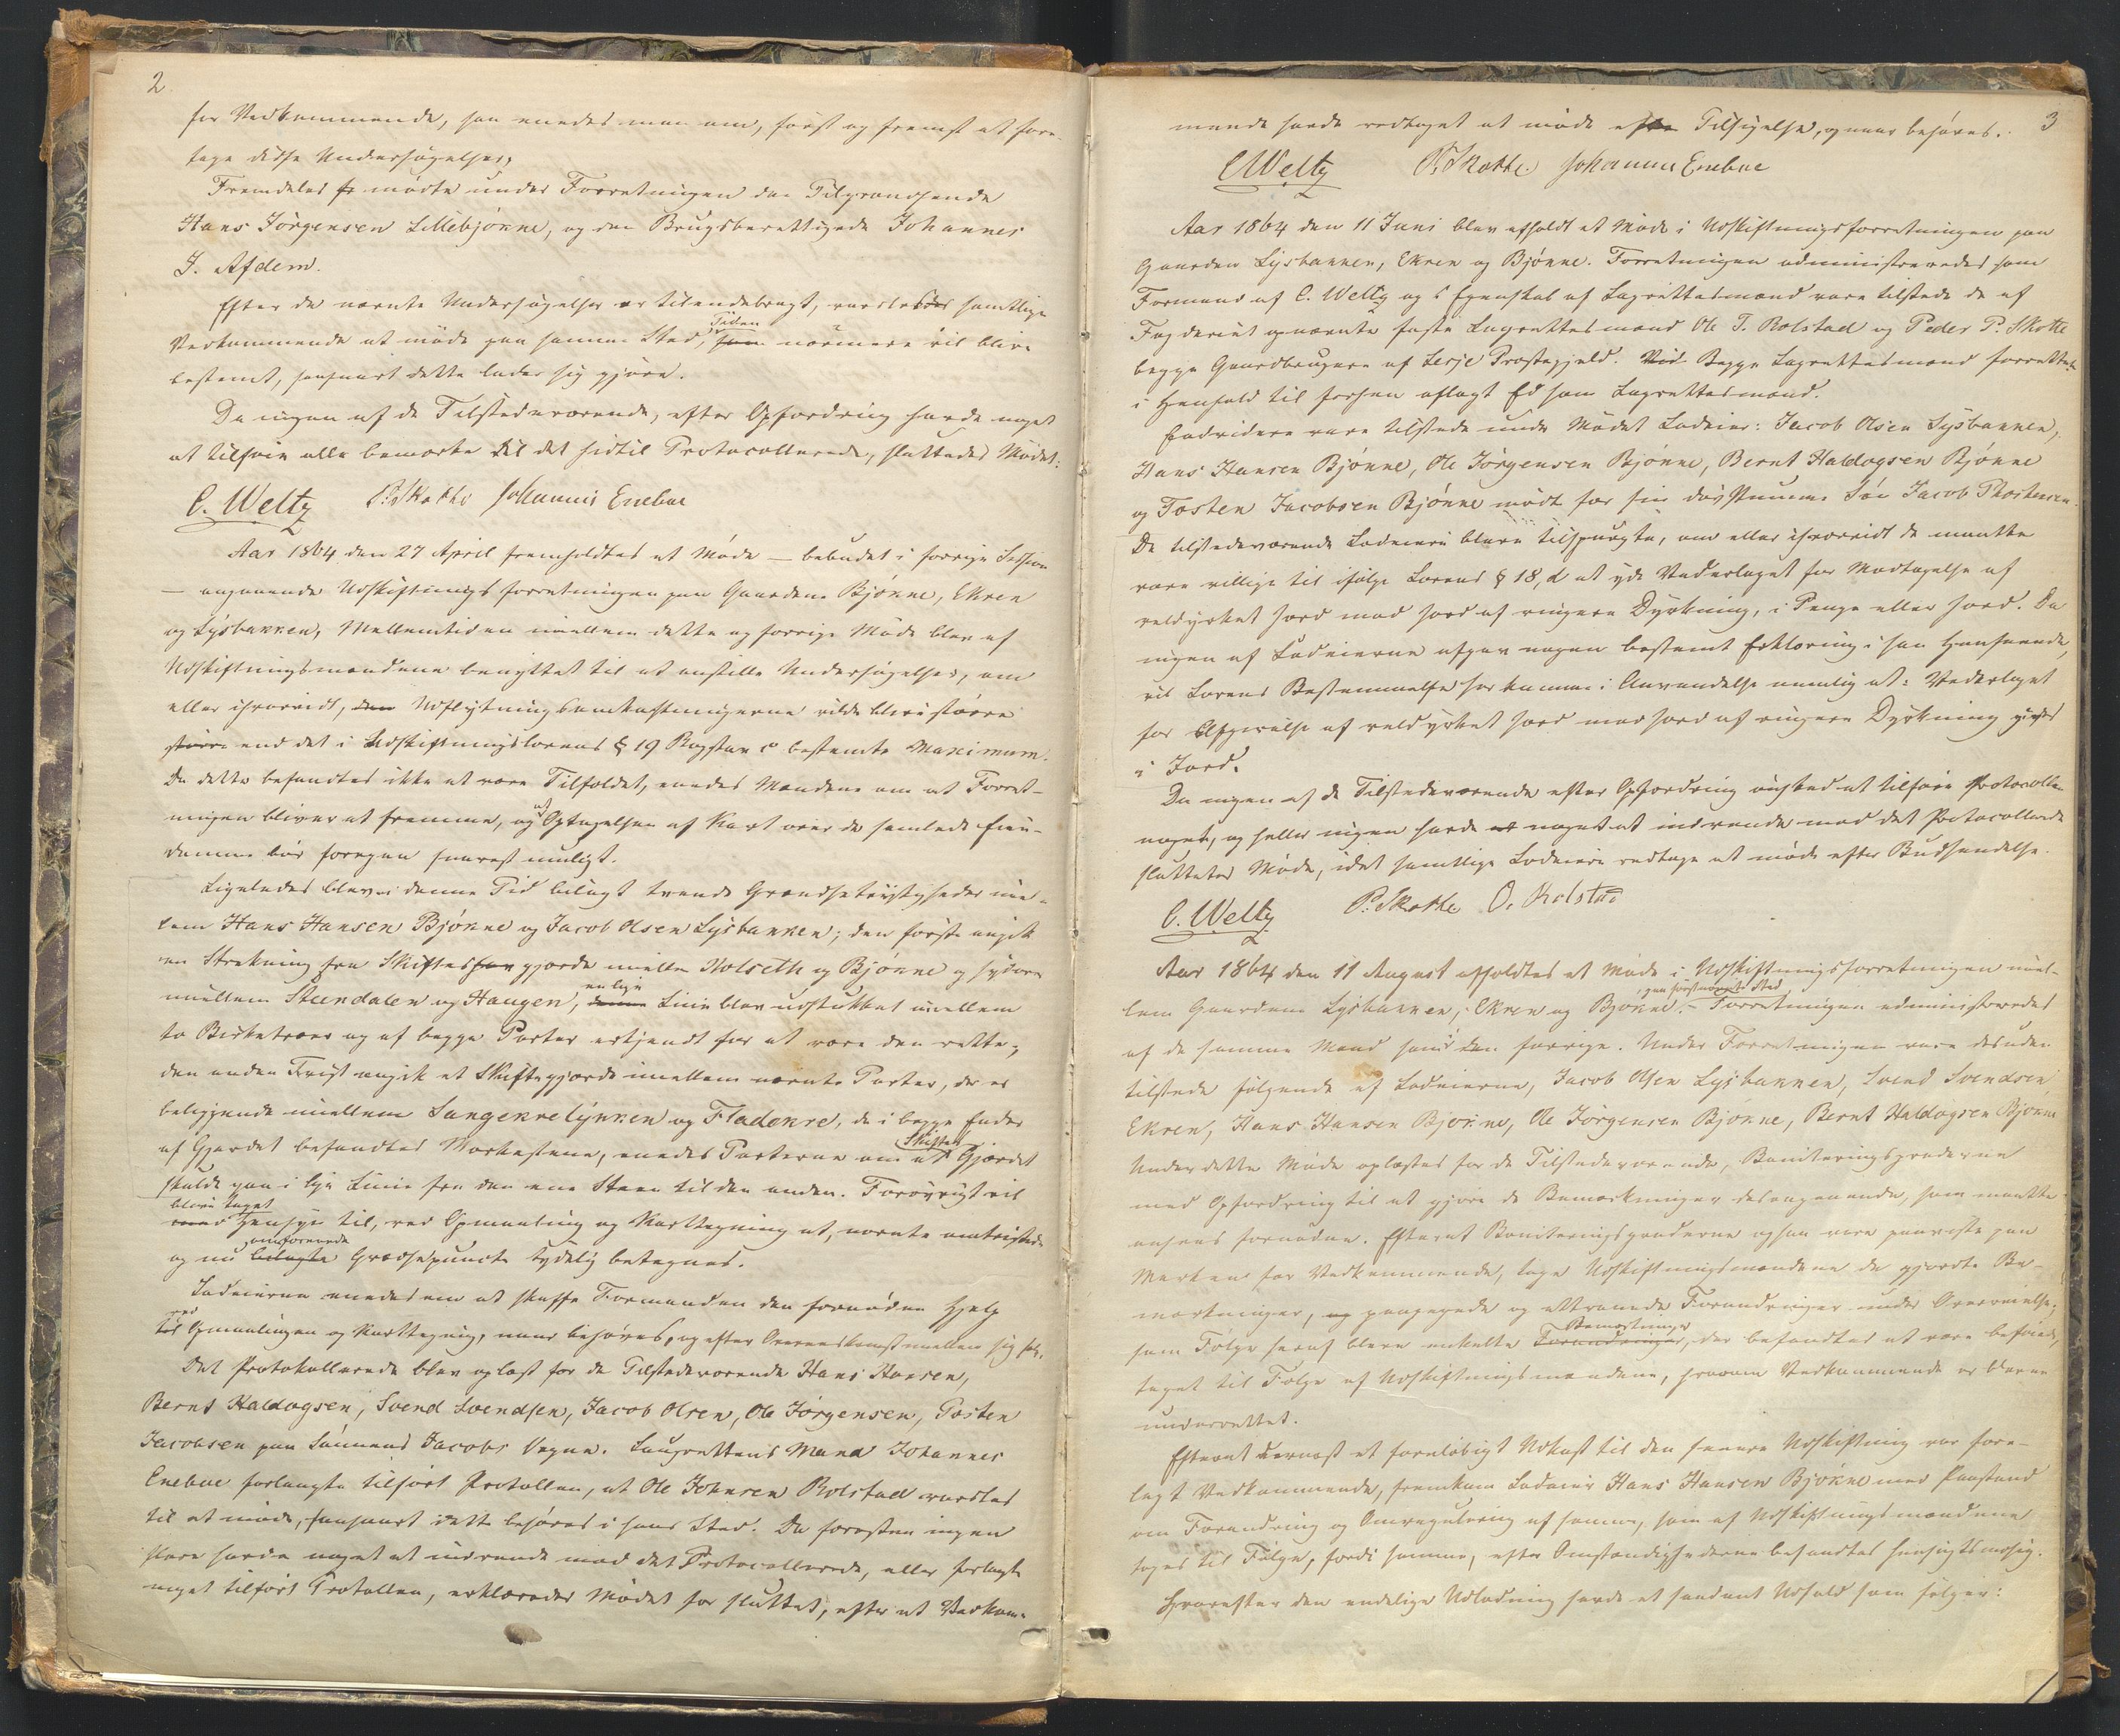 2
for Vedkommende, saa enedes man om, først og fremst at fore-
tage disse Undersøgelser.
Fremdeles mødte under Forretningen den Tilgrændsende
Hans Jörgensen Lillebjønne, og den Brugsberettigede Johannes
J. Afdem.
Efter de nævnte Undersøgelser er tilendebragt, varsledes samtlige
Vedkommende at møde paa samme Sted, Tiden nærmere vil blive
bestemt, saasnart dette lader sig gjøre.
Da ingen af de Tilstedeværende, efter Opfordring havde noget
at tilføie eller bemærke til det hidtil Protocollerede, sluttedes Mødet:
C. Weltz P. Skotte Johannes Enebue
Aar 1864 den 27 April fremholdtes et Møde — bebudet i forrige Session
— angaaende Udskiftningsforretningen paa Gaardene Bjønne, Ekren
og Lysbakken, Mellemtiden imellem dette og forrige Møde blev af
Udskiftningsmændene benyttet til at anstille Undersøgelser, om
eller hvorvidt, den Udflytningsomkostningerne vilde blive større
større end det i Udskiftningslovens § 19 Bogstav c bestemte Maximum.
Da dette befandtes ikke at være Tilfældet, enedes Mændene om at Forret-
ningen bliver at fremme, og at Optagelsen af Kart over de samlede Eien-
domme bør foregaa snarest muligt.
Ligeledes blev i denne Tid bilagt tvende Grændsetvistigheder imel-
lem Hans Hansen Bjønne og Jacob Olsen Lysbakken; den første angik
en Strekning fra Skiftesgjærde mellem Holseth og Bjønne og hidover
imellem Steendalen og Haugen, en lige Linie blev udstukket imellem
to Birketræer og af begge Parter erkjendt for at være den rette;
den anden Tvist angik et Skiftegjærde imellem nævnte Parter, der er
beliggende imellem Langekrelykken og Fladekre, da i begge Ender
af Gjærdet befandtes Markestene, enedes Parterne om at Skiftes Gjærdet
skulde gaa i lige Linie fra den ene Steen til den anden. Forøvrigt vil
blive taget Hensyn til, ved Opmaaling og Karttegning at, nævnte omtvistede
og nu omforenede Grændsepuncte tydelig betegnes.
Lodeierne enedes om at skaffe Formanden den fornødne Hjelp
ved Opmaalingen og Karttegning, naar behøves, og efter Overenskomst mellem sig selv.
Det Protokollerede blev oplæst for de Tilstedeværende Hans Hansen,
Bernt Haldogsen, Svend Svendsen, Jacob Olsen, Ole Jörgensen, Tosten
Jacobsen paa Sønnens Jacobs Vegne. Laugrettens Mand Johannes
Enebue forlangte tilført Protollen, at Ole Johnsen Rolstad varsles
til at møde, saasnart dette behøves i hans Sted. Da forresten ingen
flere havde noget at indvende mod det Protocollerede, eller forlangte
noget tilført Protollen, erklæredes Mødet for sluttet, efter at Vedkom-
3
mende havde vedtaget at møde efter Tilsigelse, og naar behøves.
C Weltz P. Skotte. Johannes Enebue
Aar 1864 den 11 Juni blev afholdt et Møde i Udskiftningsforretningen paa
Gaarden Lysbakken, Ekren og Bjønne. Forretningen administreredes som
Formand af C. Weltz og i Egenskab af Lagrettesmænd vare tilstede de af
Fogderiet opnævnte faste Lagrettesmænd Ole J. Rolstad og Peder P. Skotte
begge Gaardbrugere af Lesje Præstegjeld. Begge Lagrettesmænd forrettede
i Henhold til forhen aflagt Ed som Lagrettesmænd.
Endvidere vare tilstede under Mødet Lodeier: Jacob Olsen Lysbakken,
Hans Hansen Bjønne, Ole Jörgensen Bjönne, Bernt Haldogsen Bjönne
og Tosten Jacobsen Bjønne mødt for sin døvstumme Søn Jacob Thostensen.
De tilstedeværende Lodeiere bleve tilspurgte, om eller ihvorvidt de maatte
være villige til ifølge Lovens § 18, d at yde Vederlaget for Modtagelse af
veldyrket Jord mod Jord af ringere Dyrkning, i Penge eller Jord. Da
ingen af Lodeierne afgav nogen bestemt Erklæring i saa Henseende,
vil Lovens Bestemmelse her komme i Anvendelse nemlig at: Vederlaget
for Afgivelse af veldyrket Jord mod Jord af ringere Dyrkning gives
i Jord.
Da ingen af de Tilstedeværende efter Opfordring ønsked at tilføie Protocollen
noget, og heller ingen havde noget at indvende mod det Protocollerede
sluttetes Møde, idet samtlige Lodeiere vedtoge at møde efter Budsendelse.
C. Weltz P. Skotte O. Rolstad
Aar 1864 den 11 August afholdtes et Møde i Udskiftningsforretningen imel-
lem Gaardene Lysbakken, Ekren og Bjønne, paa førstnævnte Sted. Forretningen administreredes
af de samme Mænd som i den forrige. Under Forretningen vare desuden
tilstede følgende af Lodeierne, Jacob Olsen Lysbakken, Svend Svendsen
Ekren, Hans Hansen Bjørne, Ole Jörgensen Bjønne, Bernt Haldogsen Bjönne
Under dette Møde oplæstes for de Tilstedeværende, Boniteringsgraderne
med Opfordring til at gjøre de Bemærkninger desangaaende, som maatte
ansees fornødne. Efterat Boniteringsgraderne ogsaa vare paaviste paa
Marken for Vedkommende, toge Udskiftningsmændene de gjorte Be-
mærkninger, og paapegede og attraaede Forandringer under Overveielse;
som Følge heraf bleve enkelte Bemærkninger, der befandtes at være beføiede,
taget til Følge af Udskiftningsmændene, hvorom Vedkommende er bleven
underrettet.
Efterat dernæst et foreløbigt Udkast til den senere Udskiftning var fore-
lagt Vedkommende, fremkom Lodeier Hans Hansen Bjønne med Paastand
om Forandring og Omregulering af samme, som af Udskiftningsmændene
toges til Følge, fordi samme, efter Omstændighederne befandtes hensigtsmæsig.
Hvorefter den endelige Udlodning havde et saadant Udfald som følger: